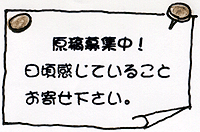 原稿募集中！
日頃感じていること
お寄せ下さい。